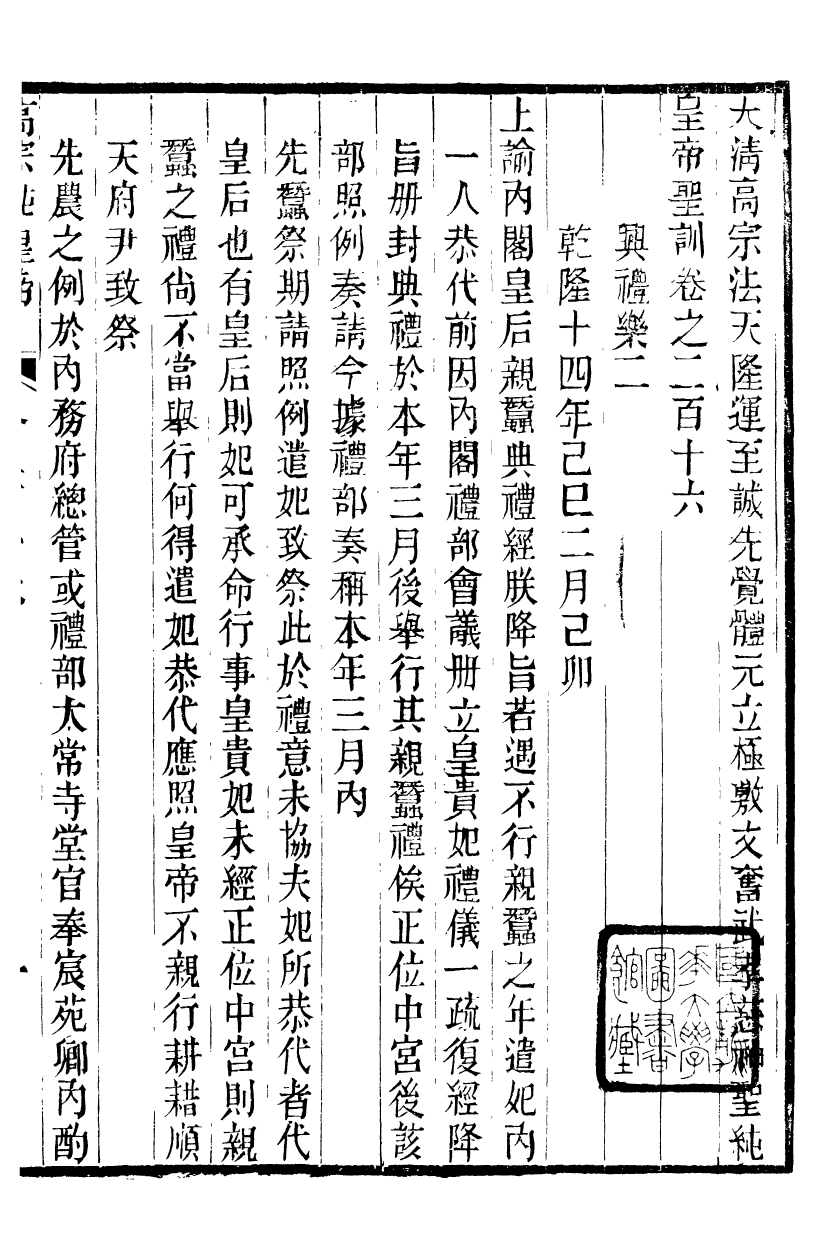 大淸高宗法天隆運至誠先覺體元立極敷文奮武孝慈神聖純
皇帝聖訓卷之二百十六
興禮樂二
乾隆十四年己巳二月己卯
上諭內閣皇后親蠶典禮經朕降旨若遇不行親蠶之年遣妃內
一人恭代前因內閣禮部會議册立皇貴妃禮儀一疏復經降
旨册封典禮於本年三月後舉行其親蠶禮俟正位中宮後該
部照例奏請今據禮部奏稱本年三月內
先蠶祭期請照例遣妃致祭此於禮意未協夫妃所恭代者代
皇后也有皇后則妃可承命行事皇貴妃未經正位中宮則親
蠶之禮尙不當舉行何得遣妃恭代應照皇帝不親行耕耤順
天府尹致祭
先農之例於內務府總管或禮部太常寺堂官奉宸苑卿內酌
高宗純皇帝
大學
圖書
館藏